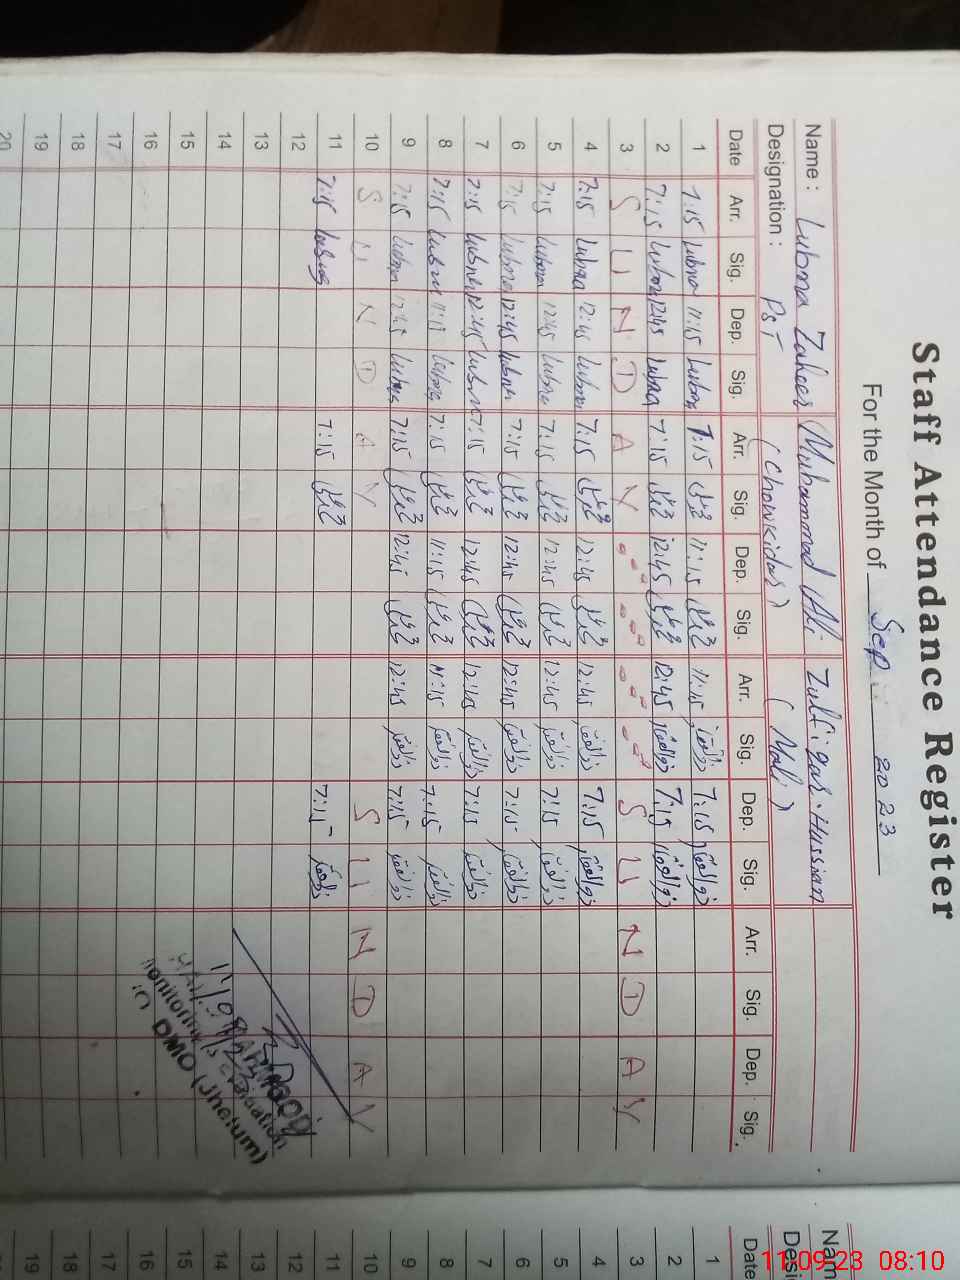 Staff Attendance Register
For the Month of Sep 2023
Name : Lubna Zaheer Muhammad Ali Zulfiqar Hussian
Designation : PST (Chowkidar) (Mali)
Date Arr. Sig. Dep. Sig. Arr. Sig. Dep. Sig. Arr. Sig. Dep. Sig. Arr. Sig. Dep. Sig.
1 7:15 Lubna 11:15 Lubna 7:15 11:15 11:15 ذوالفقار 7:15 ذوالفقار
2 7:15 Lubna 12:45 Lubna 7:15 12:45 12:45 ذوالفقار 7:15 ذوالفقار
3 S U N D A Y S U N D A Y
4 7:15 Lubna 12:45 Lubna 7:15 12:45 12:45 ذوالفقار 7:15 ذوالفقار
5 7:15 Lubna 12:45 Lubna 7:15 12:45 12:45 ذوالفقار 7:15 ذوالفقار
6 7:15 Lubna 12:45 Lubna 7:15 12:45 12:45 ذوالفقار 7:15 ذوالفقار
7 7:15 Lubna 12:45 Lubna 7:15 12:45 12:45 ذوالفقار 7:15 ذوالفقار
8 7:15 Lubna 11:15 Lubna 7:15 11:15 11:15 ذوالفقار 7:15 ذوالفقار
9 7:15 Lubna 12:45 Lubna 7:15 12:45 12:45 ذوالفقار 7:15 ذوالفقار
10 S U N D A Y S U N D A Y
11 7:15 Lubna 7:15 7:15 ذوالفقار
12
13
14
15
16
17
18
19
20
Monitoring & Evaluation
DMO (Jhelum)
Nam
Desi
Date
1
2
3
4
5
6
7
8
9
10
11
12
13
14
15
16
17
18
19
11.09.23 08:10